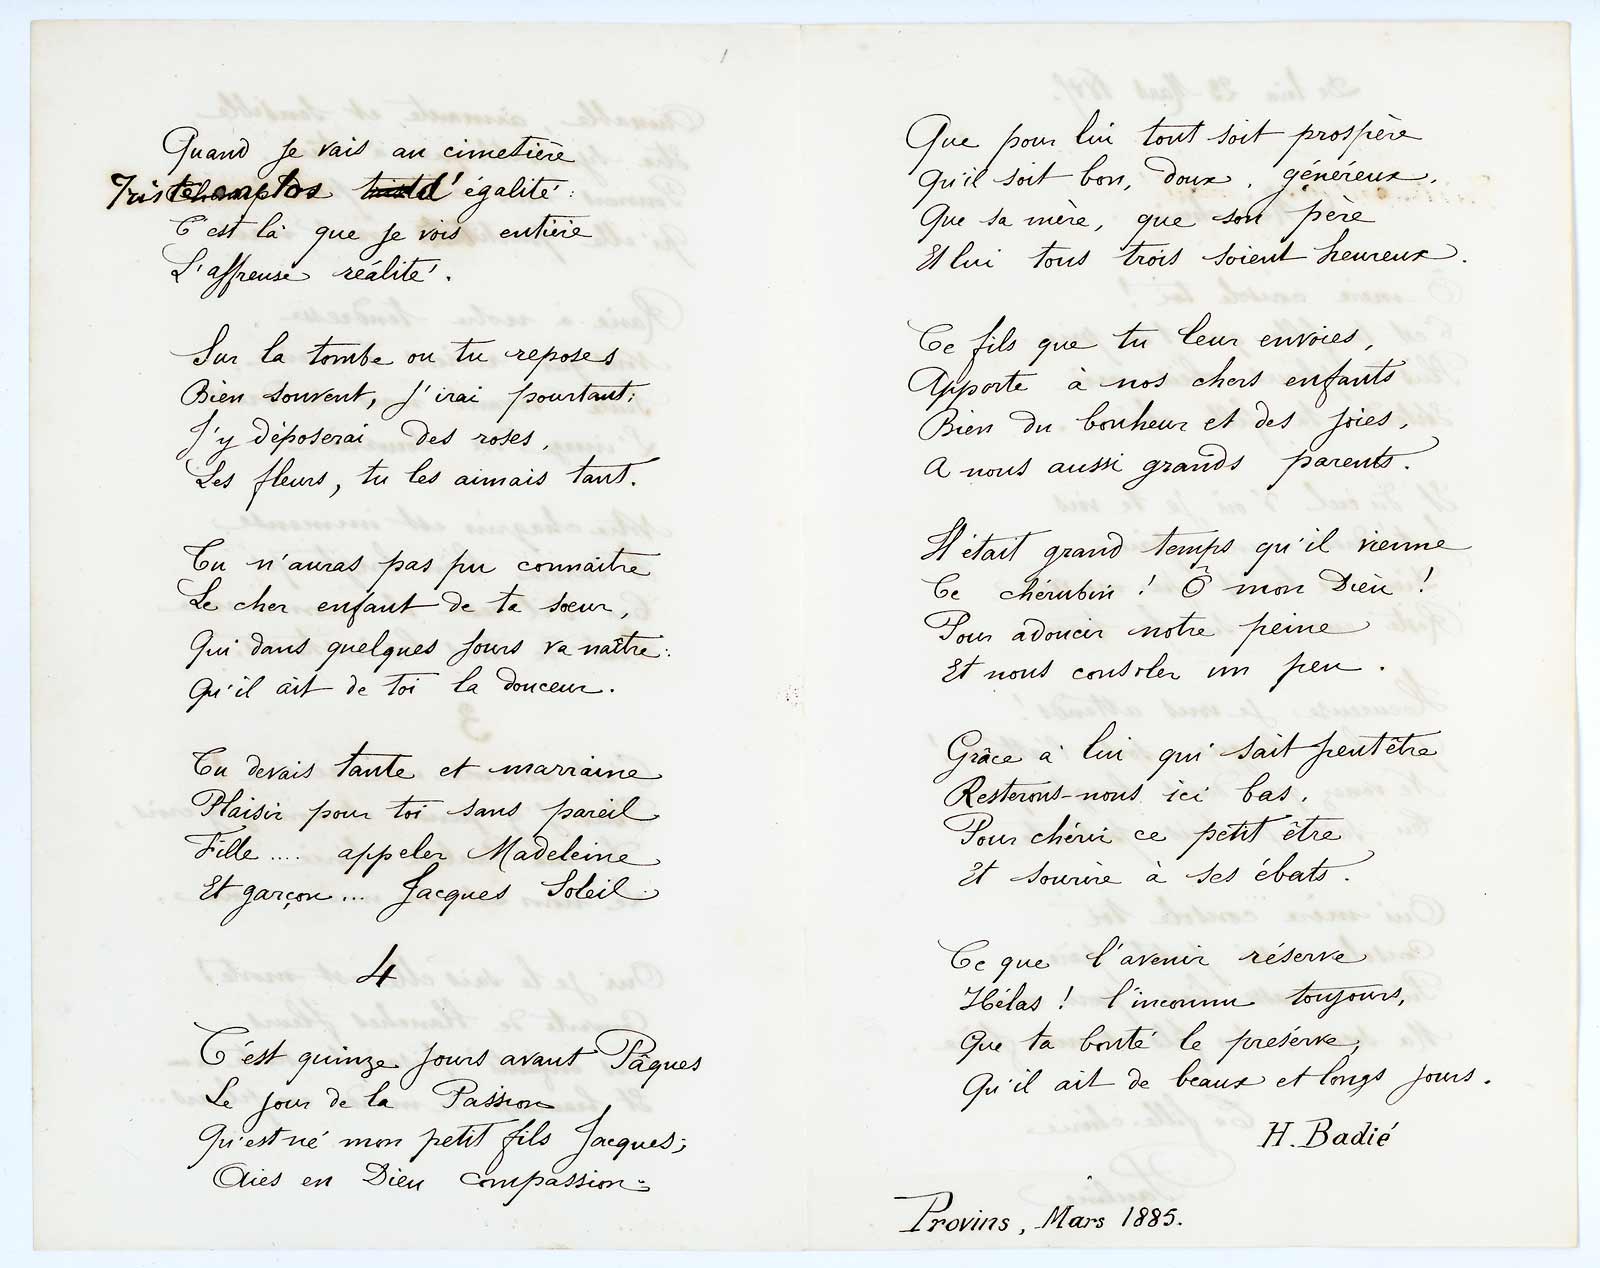 Quand je vais au cimetière
Triste champ d'égalité:
C'est là que je vois entière
L'affreuse réalité.
Sur la tombe ou tu reposes
Bien souvent, j'irai pourtant;
J'y déposerai des roses,
Les fleurs, tu les aimais tant.
Tu n'auras pas pu connaître
Le cher enfant de ta sœur,
Qui dans quelques jours va naître:
Qu'il ait de toi la douceur.
Tu devais tante et marraine
Plaisir pour toi sans pareil
Fille .... appeler Madeleine
Et garçon ... Jacques Soleil.
4
C'est quinze jours avant Pâques
Le jour de la Passion
Qu'est né mon petit fils Jacques;
Aies en Dieu compassion:
Que pour lui tout soit prospère
Qu'il soit bon, doux, généreux,
Que sa mère, que son père
Et lui tous trois soient heureux.
Ce fils que tu leur envoies,
Apporte à nos chers enfants
Bien du bonheur et des joies,
A nous aussi grands parents.
Il était grand temps qu'il vienne
Ce chérubin ! Ô mon Dieu !
Pour adoucir notre peine
Et nous consoler un peu.
Grâce à lui qui sait peut être
Resterons-nous ici bas,
Pour chérir ce petit être
Et sourire à ses ébats.
Ce que l'avenir réserve
Hélas ! l'inconnu toujours,
Que ta bonté le préserve,
Qu'il ait de beaux et longs jours.
H. Badié
Provins, Mars 1885.